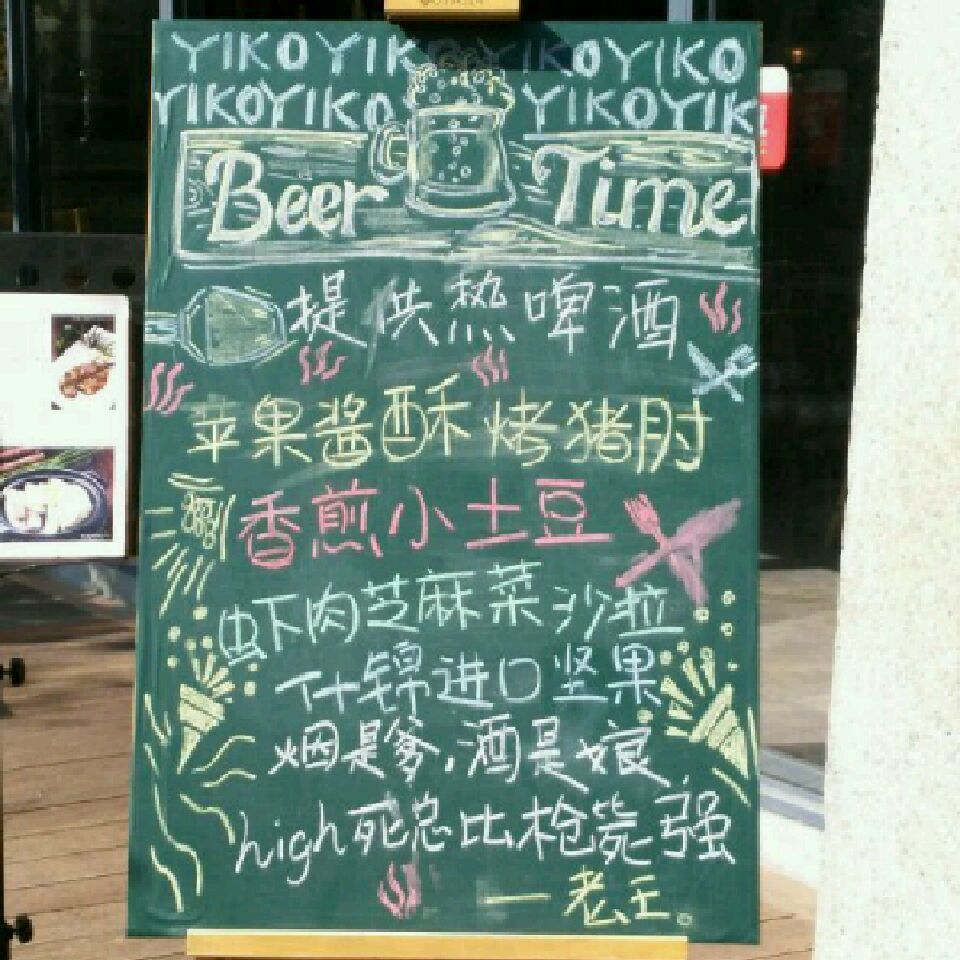 YIKOYIK YIKOYIKO
YIKOYIKO YIKOYIK
Beer Time
提供热啤酒
苹果酱酥烤猪肘
香煎小土豆
虾肉芝麻菜沙拉
什锦进口坚果
烟是爹,酒是娘,
high死总比枪毙强
—老王。